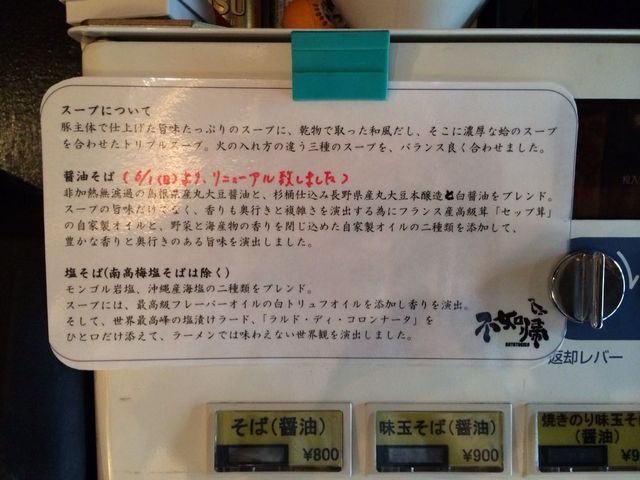 スープについて
豚主体で仕上げた旨味たっぷりのスープに、乾物で取った和風だし、そこに濃厚な蛤のスープ
を合わせたトリプルスープ。火の入れ方の違う三種のスープを、バランス良く合わせました。
醤油そば (6/1(日)より、リニューアル致しました)
非加熱無濾過の島根県産丸大豆醤油と、杉桶仕込み長野県産丸大豆本醸造と白醤油をブレンド。
スープの旨味だけでなく、香りも奥行きと複雑さを演出する為にフランス産高級茸「セップ茸」
の自家製オイルと、野菜と海産物の香りを閉じ込めた自家製オイルの二種類を添加して、
豊かな香りと奥行きのある旨味を演出しました。
塩そば(南高梅塩そばは除く)
モンゴル岩塩、沖縄産海塩の二種類をブレンド。
スープには、最高級フレーバーオイルの白トリュフオイルを添加し香りを演出。
そして、世界最高峰の塩漬けラード、「ラルド・ディ・コロンナータ」を
ひと口だけ添えて、ラーメンでは味わえない世界観を演出しました。
不如帰
HOTOTOGISU
返却レバー
そば(醤油)
¥800
味玉そば(醤油)
¥900
焼きのり味玉そ
(醤油)